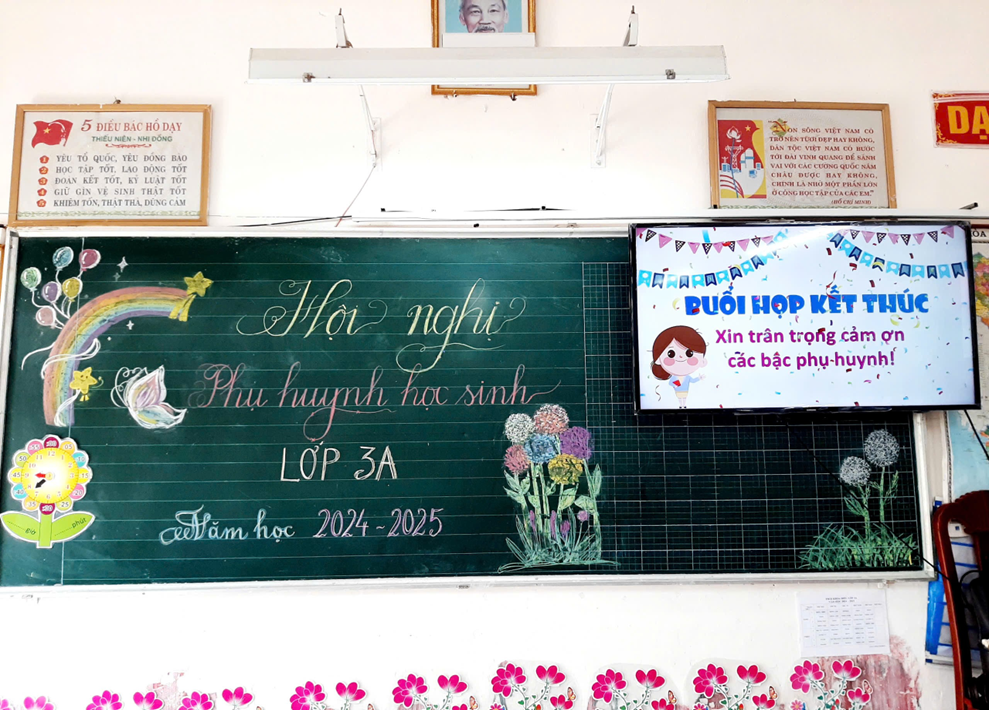 5 ĐIỀU BÁC HỒ DẠY
THIẾU NIÊN - NHI ĐỒNG
1 YÊU TỔ QUỐC, YÊU ĐỒNG BÀO
2 HỌC TẬP TỐT, LAO ĐỘNG TỐT
3 ĐOÀN KẾT TỐT, KỶ LUẬT TỐT
4 GIỮ GÌN VỆ SINH THẬT TỐT
5 KHIÊM TỐN, THẬT THÀ, DŨNG CẢM
NON SÔNG VIỆT NAM CÓ
TRỞ NÊN TƯƠI ĐẸP HAY KHÔNG,
DÂN TỘC VIỆT NAM CÓ BƯỚC
TỚI ĐÀI VINH QUANG ĐỂ SÁNH
VAI VỚI CÁC CƯỜNG QUỐC NĂM
CHÂU ĐƯỢC HAY KHÔNG,
CHÍNH LÀ NHỜ MỘT PHẦN LỚN
Ở CÔNG HỌC TẬP CỦA CÁC EM.
(HỒ CHÍ MINH)
DẠ
Hội nghị
Phụ huynh học sinh
LỚP 3A
Năm học 2024 - 2025
BUỔI HỌP KẾT THÚC
Xin trân trọng cảm ơn
các bậc phụ huynh!
giờ
phút